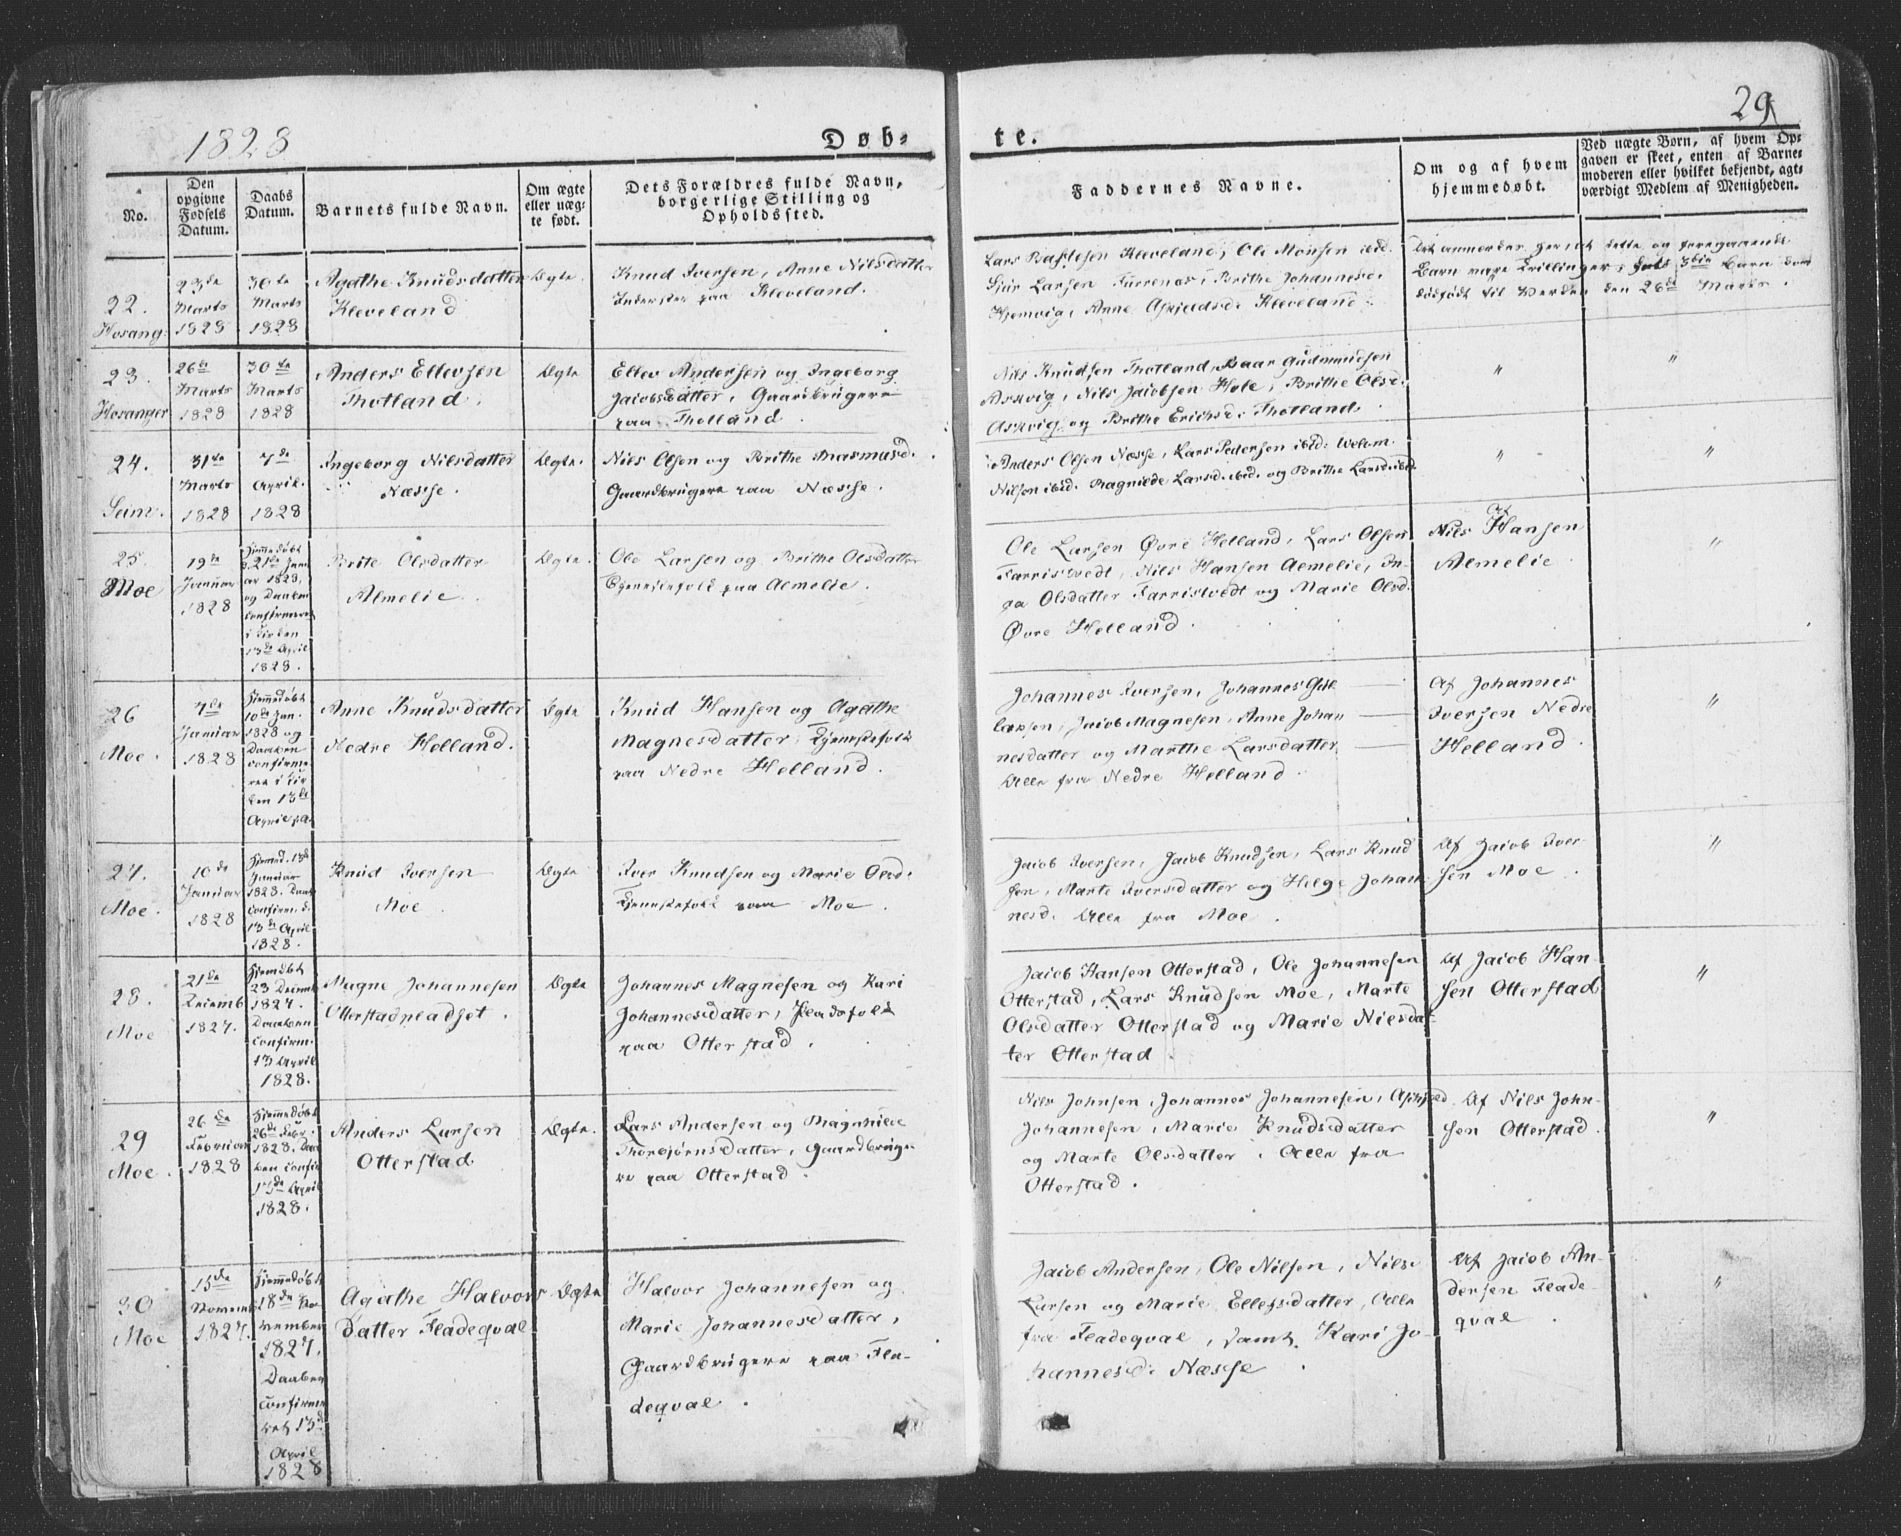 1828
Døb-
te.
29
No.
Den
opgivne
Fødsels
Datum.
Daabs
Datum.
Barnets fulde Navn.
Om ægte
eller uæg-
te født.
Dets Forældres fulde Navn,
borgerlige Stilling og
Opholdssted.
Faddernes Navne.
Om og af hvem
hjemmedøbt.
Ved uægte Børn, af hvem Op-
gaven er skeet, enten af Barne-
moderen eller hvilket bekjendt, agt-
værdigt Medlem af Menigheden.
22.
Hosang:
23de
Marts
1828
30te
Marts
1828
Agathe Knudsdatter
Kleveland
Ægte
Knud Iversen, Anne Nilsdatter
Inderster paa Kleveland.
Lars Kleveland, Ole Monsen ibid.
Siur Larsen Brithe Johannesd.
Hjemvig, Anne Kleveland
Det anmerkes her at dette og foregaaende
Barn vare Trillinger, 3die Barn kom
dødfødt til Verden den 26de Marts.
23.
Hosanger
26de
Marts
1828
30te
Marts
1828
Anders Ellevsen
Thotland.
Ægte
Ellev Andersen og Ingeborg
Jacobsdatter, Gaardbrugere
paa Thotland.
Nils Knudsen Thotland, Baar Gudmundsen
Askvig, Nils Jacobsen Hole, Brithe Olsd.
Askvig og Brithe Erichsd: Thotland.
"
"
24.
Sam.
31te
Marts
1828
7de
April.
1828
Ingeborg Nilsdatter
Næsse.
Ægte.
Nils Olsen og Brithe Rasmusd.
Gaardbrugere paa Næsse.
Anders Olsen Næsse, Lars Pedersen ibid: Welom
Nilsen ibid. Ragnilde Larsd. ibid. og Brithe Larsd. ibid.
"
"
25.
Moe
19de
Januar
1828
Hjemmedøbt
d. 21de Janu
ar 1828,
og Daaben
confirmeret
i Kirken
13de April
1828.
Brite Olsdatter
Almelie.
Ægte.
Ole Larsen og Brithe Olsdatter
Tjenestefolk paa Aemelie.
Ole Larsen Øvre Helland, Lars Olsen
Farristvedt, Nils Hansen Aemelie, In-
ga Olsdatter Farristvedt og Marie Olsd.
Øvre Helland.
Af
Nils Hansen
Almelie
"
26
Moe.
7de
Januar
1828
Hjemmedøbt
10de Jan.
1828 og
Daaben
confirme
ret i Kir
ken 13de
April
Anne Knudsdatter
Nedre Helland.
Ægte
Knud Hansen og Agathe
Magnesdatter, Tjenestefolk
paa Nedre Helland.
Johannes Iversen, Johannes
Jacob Magnesen, Anne Johan
nesdatter og Marthe Larsdatter
Alle fra Nedre Helland.
Af Johannes
Iversen Nedre
Helland.
"
27.
Moe.
10de
Januar
1828
Hjemmed. 13de
Januar
1828. Daab.
confirm. d.
13de April
1828.
Knud Iversen
Moe.
Ægte
Iver Knudsen og Marie Olsd:
Tjenestefolk paa Moe.
Jacob Iversen, Jacob Knudsen, Lars Knud
sen, Marte Iversdatter og Helge Johan-
nesd. Alle fra Moe.
Af Jacob Iver
sen Moe.
"
28.
Moe
21de
Decemb
1827.
Hjemdøbt
23 Decemb
1827.
Daaben
confirm.
13 April
1828.
Magne Johannesen
Otterstadpladset.
Ægte
Johannes Magnesen og Kari
Johannesdatter, Pladsfolk
paa Otterstad.
Jacob Hansen Otterstad, Ole Johannesen
Otterstad, Lars Knudsen Moe, Marte
Olsdatter Otterstad og Marie Nilsdat-
ter Otterstad.
Af Jacob Han-
sen Otterstad
"
29
Moe.
26de
Februar
1828
Hjemmedøbt
26de Febr.
1828, Daa
ben confir
13de April
1828.
Anders Larsen
Otterstad
Ægte.
Lars Andersen og Magnhilde
Thorbjørnsdatter, Gaardbruge-
re paa Otterstad.
Nils Johnsen, Johannes Johannesen,
Johannesen, Marie Knudsdatter
og Marte Olsdatter, Alle fra
Otterstad.
Af Nils John-
sen Otterstad.
"
30
Moe
15de
Novemb.
1827.
Hjemmedøbt
18de No-
vember
1827.
Daaben
confirme
ret 13de
April
1828
Agathe Halvors-
datter Fladeqval
Ægte
Halvor Johannesen og
Marie Johannesdatter,
Gaardbrugere paa Fla-
deqval.
Jacob Andersen, Ole Nilsen, Nils
Larsen og Marie Ellefsdatter, Alle
fra Fladeqval, samt Kari Jo-
hannesd: Næsse.
Af Jacob An-
dersen Flade-
qval.
"